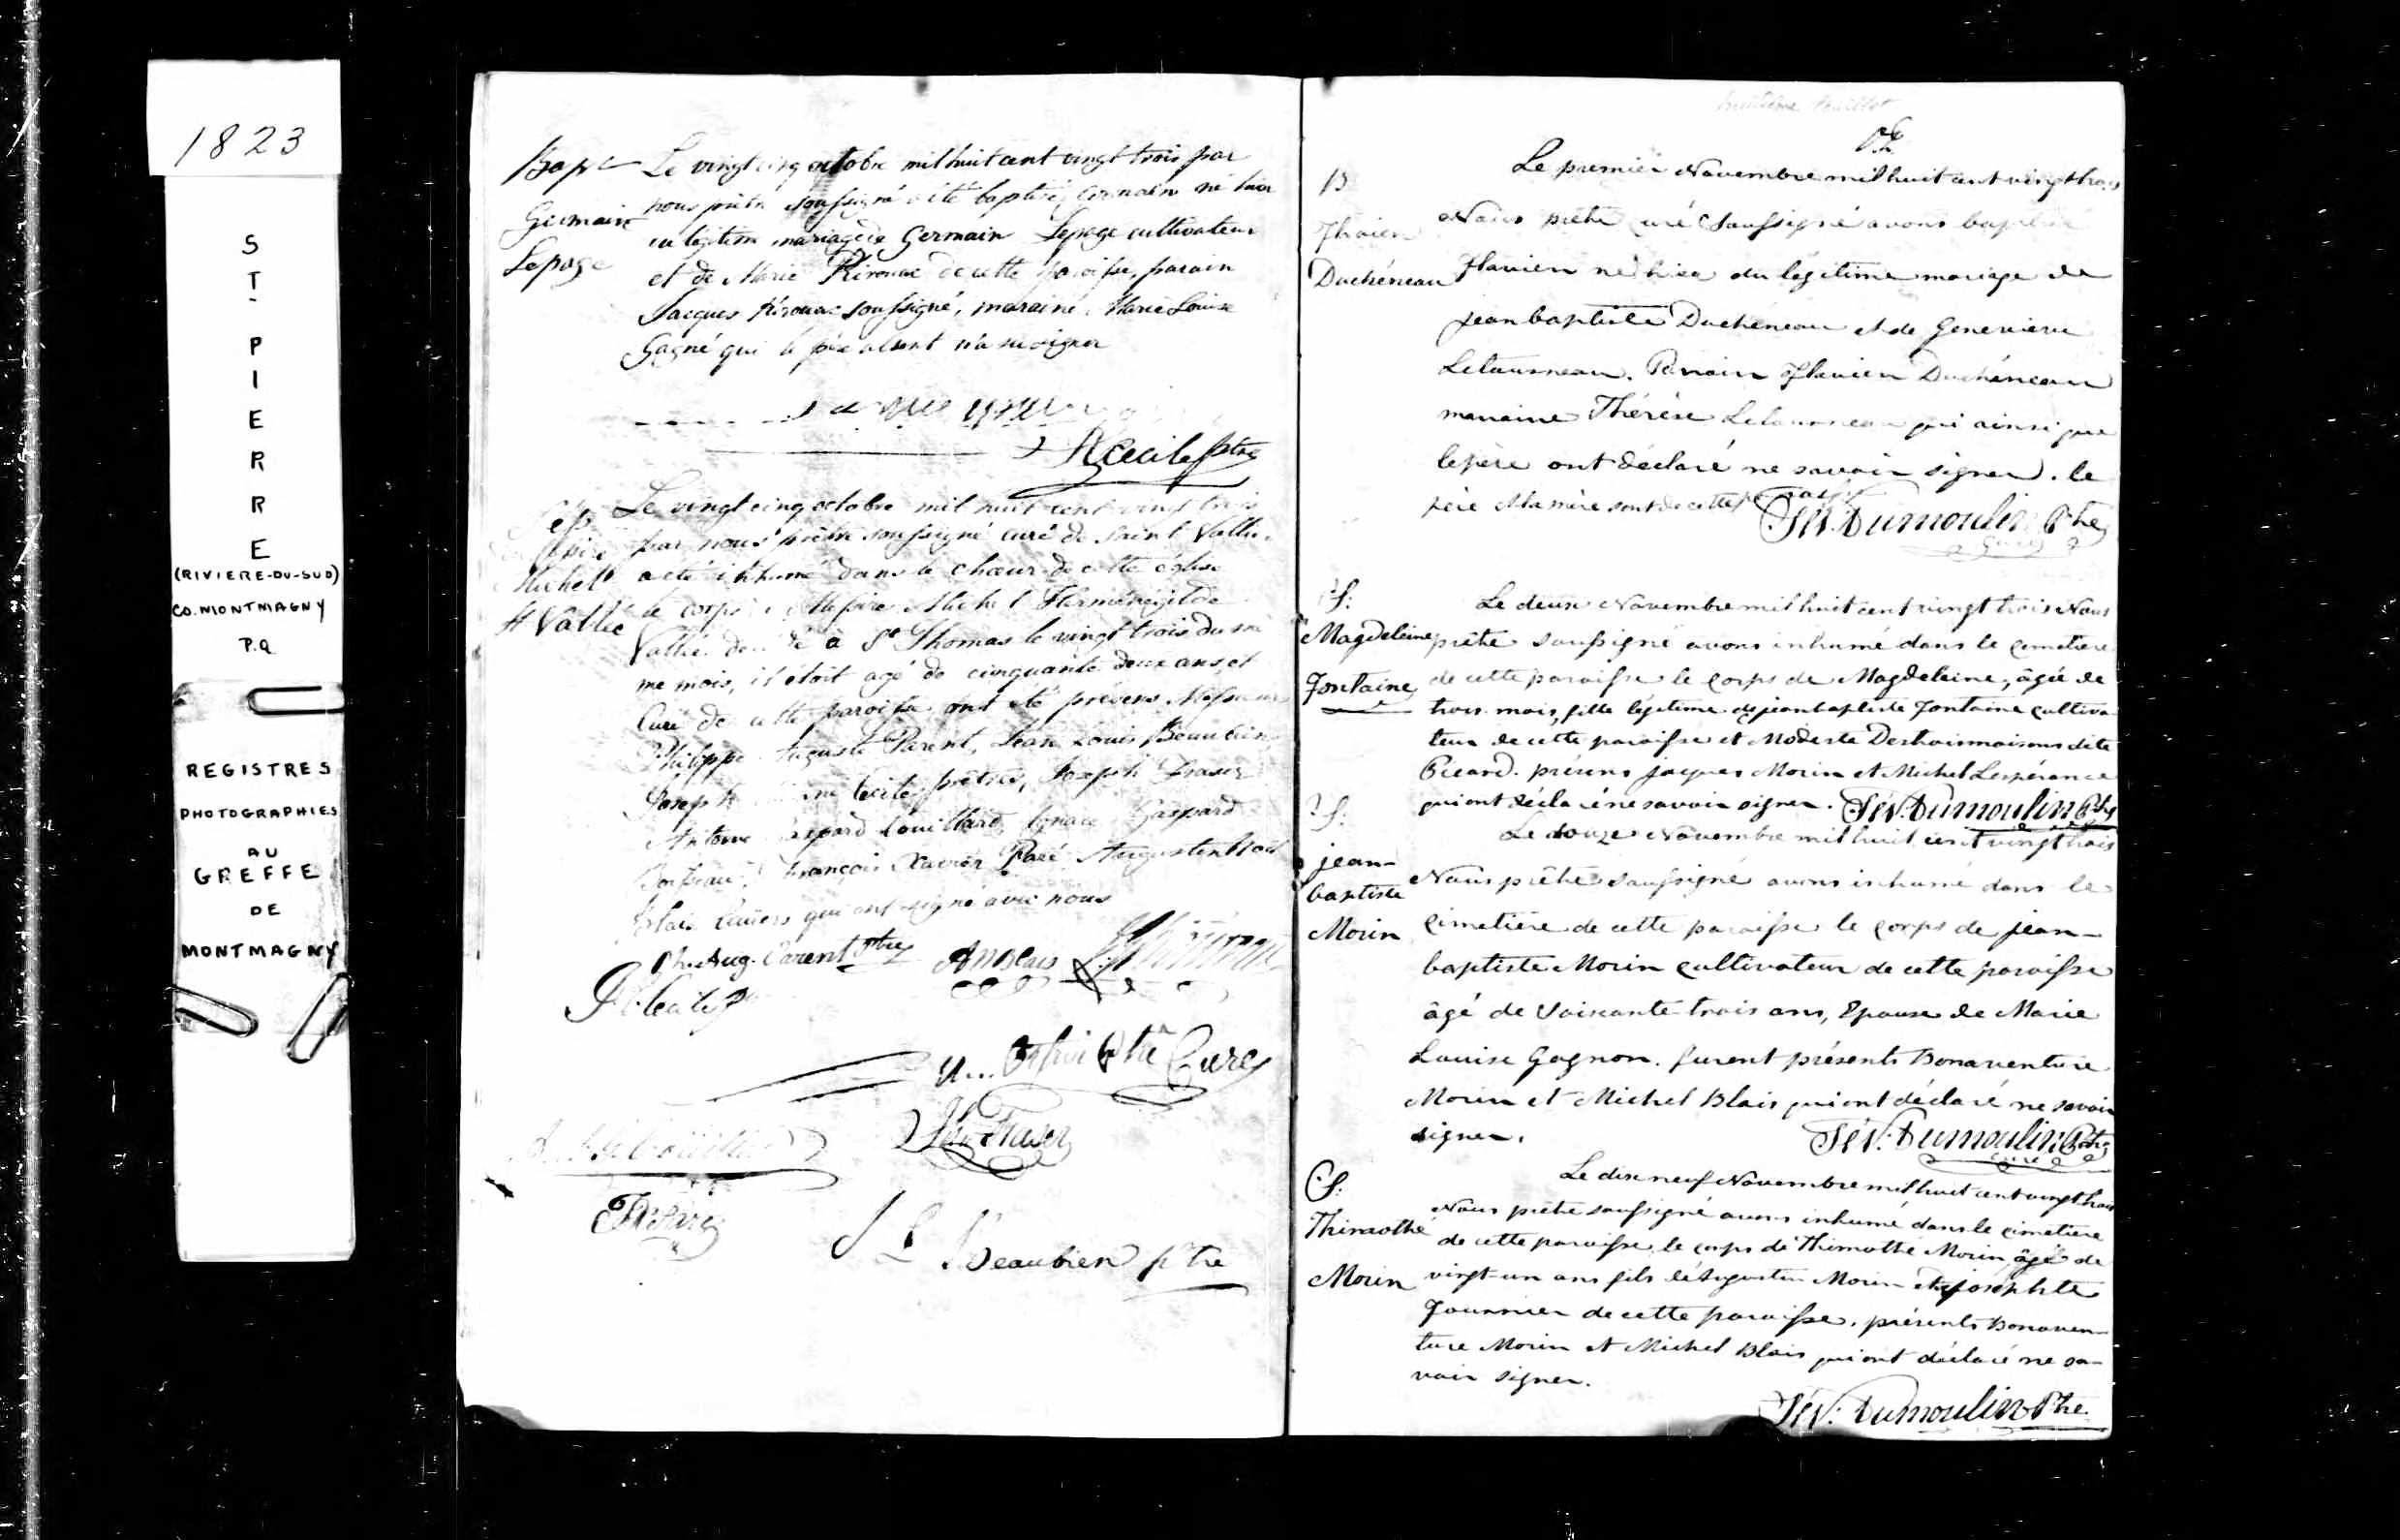 1823
ST PIERRE
(RIVIERE-DU-SUD)
CO. MONTMAGNY
P.Q.
REGISTRES
PHOTOGRAPHIES
AU
GREFFE
DE
MONTMAGNY
Bapt
Germain
Lepage
Le vingt cinq octobre mil huit cent vingt trois par
nous prêtre soussigné a été baptisé Germain né hier
en légitime mariage de Germain Lepage cultivateur
et de Marie Kirouac de cette paroisse, parain
Jacques Kirouac soussigné, maraine Marie Louise
Gagné qui le père absent n'a su signer
Cecile ptre
Sep
Michel
H Vallée
Le vingt cinq octobre mil huit cent vingt trois
par nous prêtre soussigné curé de Saint Vallier
a été inhumé dans le chœur de cette église
le corps Messire Michel Herménégilde
Vallée à St Thomas le vingt trois du mê
me mois, il étoit agé de cinquante deux ans, et
Curé de cette paroisse ont été présens Messieurs
Philippe Auguste Parent, Jean Louis Beaubien
Joseph Cecile prêtres, Joseph Fraser
Antoine Gaspard Couillard, Ignace Gaspard
François Xavier Paré Augustin
Blais Ecuiers qui ont signé avec nous
Ph. Aug. Parent Ptre
A Blais
Cecile Ptre
Ptre Curé
Fraser
Paré
J L Beaubien ptre
huitième feuillet
B
Flavien
Duchéneau
Le premier Novembre mil huit cent vingt trois
Nous prêtre curé Soussigné avons baptisé
Flavien né hier du légitime mariage de
jean baptiste Duchéneau et de Genevieve
Letourneau. Parrain Flavien Duchéneau
marraine Thérèse Letourneau qui ainsi que
le père ont déclaré ne savoir signer. le
père et la mère sont de cette paroisse
Sév: Dumoulin Ptre
Curé
S:
Magdeleine
Fontaine
Le deux Novembre mil huit cent vingt trois Nous
prêtre soussigné avons inhumé dans le cimetiere
de cette paroisse le corps de Magdeleine, âgée de
trois mois, fille légitime de jean baptiste Fontaine cultiva
teur de cette paroisse et Modeste Destroismaisons dite
Picard. présens Jacques Morin et Michel Lespérance
qui ont déclaré ne savoir signer. Sév: Dumoulin Ptre
S:
jean-
baptiste
Morin
Le douze Novembre mil huit cent vingt trois
Nous prêtre soussigné avons inhumé dans le
cimetière de cette paroisse le corps de jean-
baptiste Morin cultivateur de cette paroisse
âgé de soixante-trois ans, Epoux de Marie
Louise Gagnon. furent présents Bonaventure
Morin et Michel Blais qui ont déclaré ne savoir
signer. Sév: Dumoulin Ptre
curé
S:
Thimothé
Morin
Le dix neuf Novembre mil huit cent vingt trois
Nous prêtre soussigné avons inhumé dans le cimetiere
de cette paroisse le corps de Thimothé Morin âgé de
vingt-un ans fils d'Augustin Morin et de josephte
Fournier de cette paroisse. présents Bonaven-
ture Morin et Michel Blais qui ont déclaré ne sa-
voir signer.
Sév: Dumoulin Ptre.